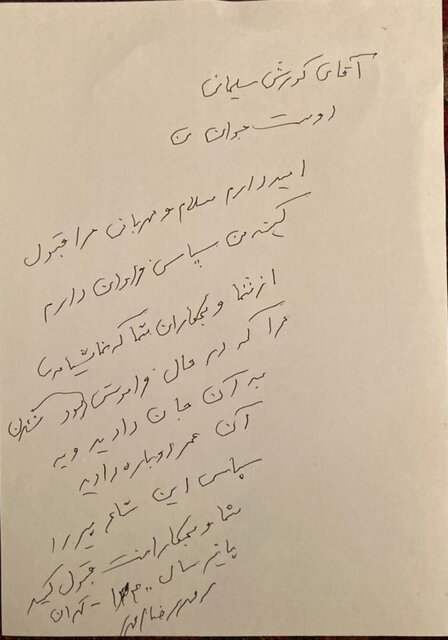 آقای کورش سلیمانی
دوست جوان من
امیدوارم سلام و مهربانی مرا قبول
کنید من سپاس فراوان دارم
از شما و همکاران شما که نمایشنامه
مرا که در حال فراموش شدن
به آن جان دادید و به
آن عمر دوباره دادید
سپاس این شاعر پیر را
شما و همکارانت قبول کنید
پاییز سال ۱۴۰۰ - تهران